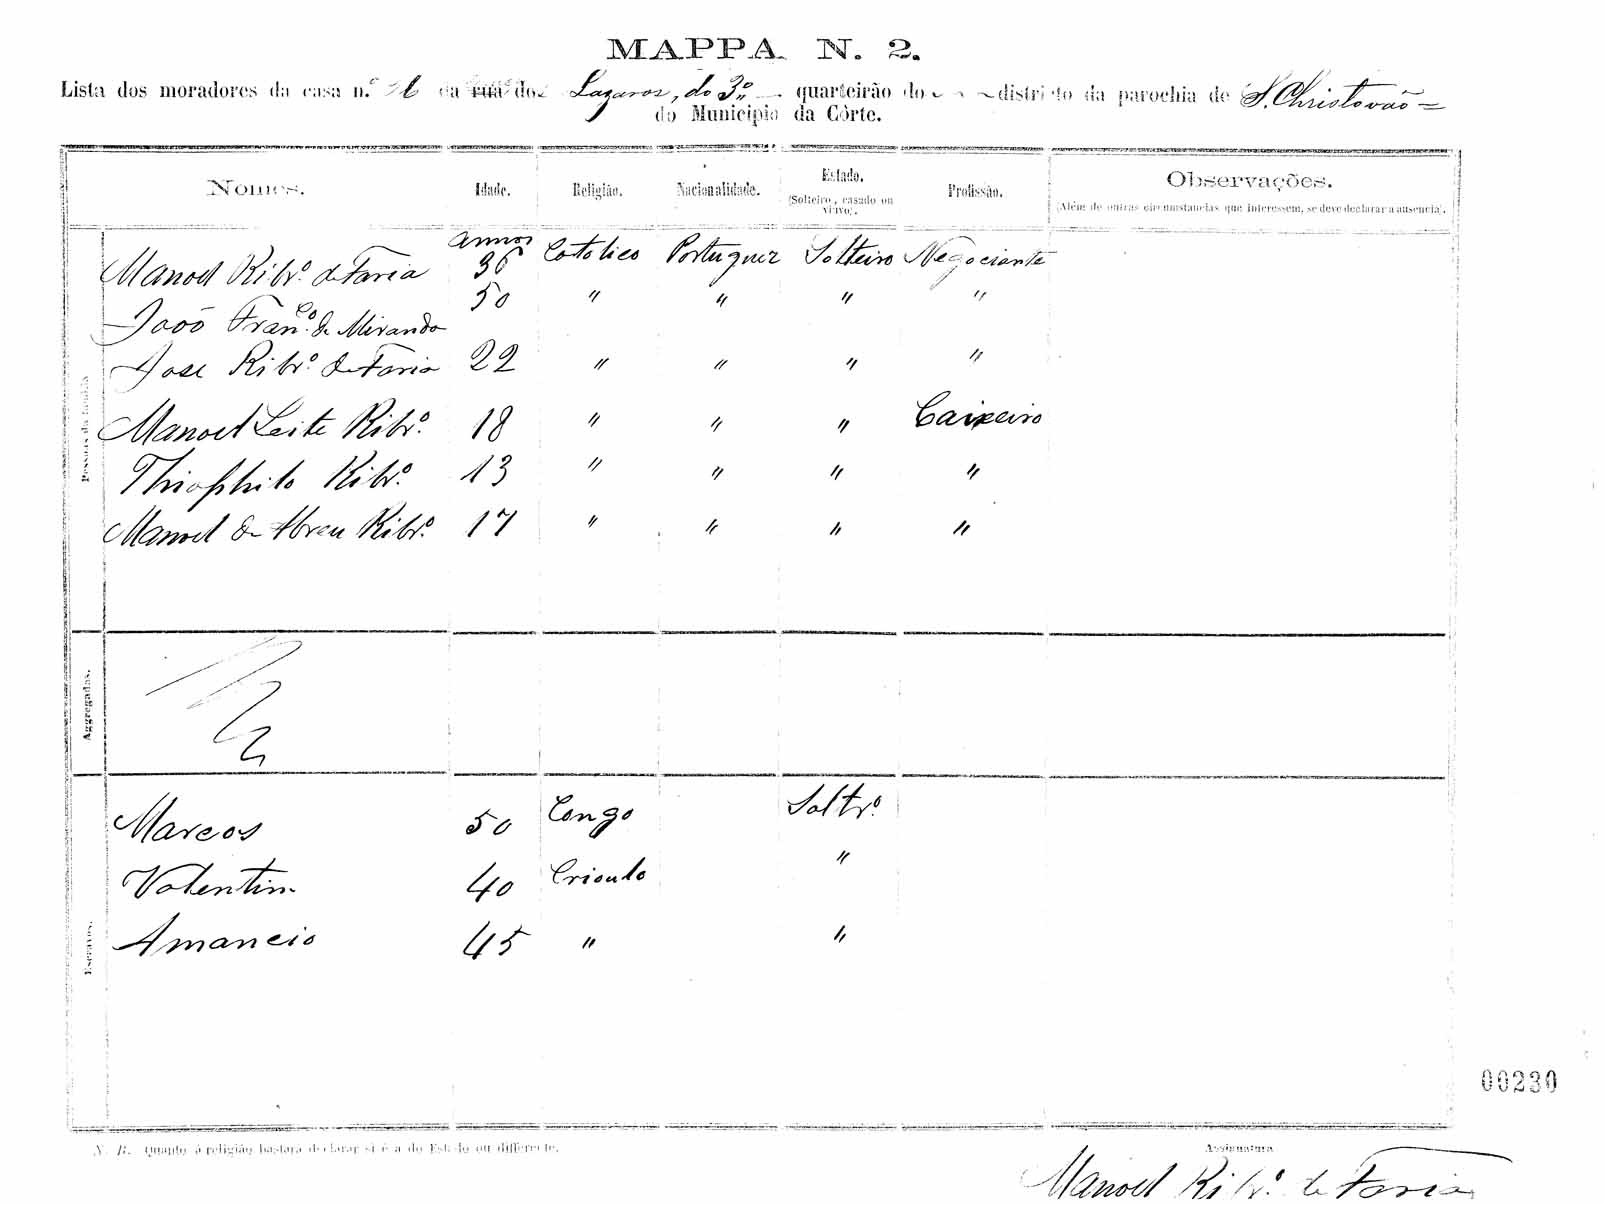 MAPPA N. 2.
Lista dos moradores da casa n.º da rua dos Lazaros, do 3.º quarteirão do districto da parochia de S. Christovão
do Municipio da Côrte.
Nomes. Idade. Religião. Nacionalidade. Estado. (Solteiro, casado ou viuvo). Profissão. Observações. (Além de outras circumstancias que interessem, se deve declarar a ausencia).
Pessoas da familia
annos
Manoel Ribr.º de Faria 36 Catolico Portuguez Solteiro Negociante
João Fran.co de Miranda 50 " " " "
Jose Ribr.º de Faria 22 " " " "
Manoel Leite Ribr.º 18 " " " Caixeiro
Thiophilo Ribr.º 13 " " " "
Manoel de Abreu Ribr.º 17 " " " "
Aggregadas.
Escravos.
Marcos 50 Congo Soltr.º
Valentim 40 Crioulo "
Amancio 45 " "
00230
N. B. Quanto á religião bastará declarar si é a do Estado ou differente.
Assignatura
Manoel Ribr.º de Faria